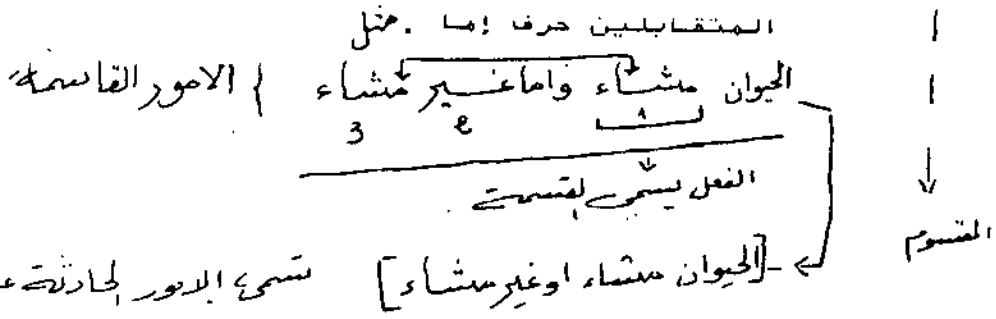 المتقابلين حرف إما . مثل
الحيوان مشاء واما غير مشاء } الامور القاسمة
١ ٢ 3
الفعل يسمى القسمة
المقسوم
[الحيوان مشاء او غير مشاء] تسمى الامور الحادثة عـ